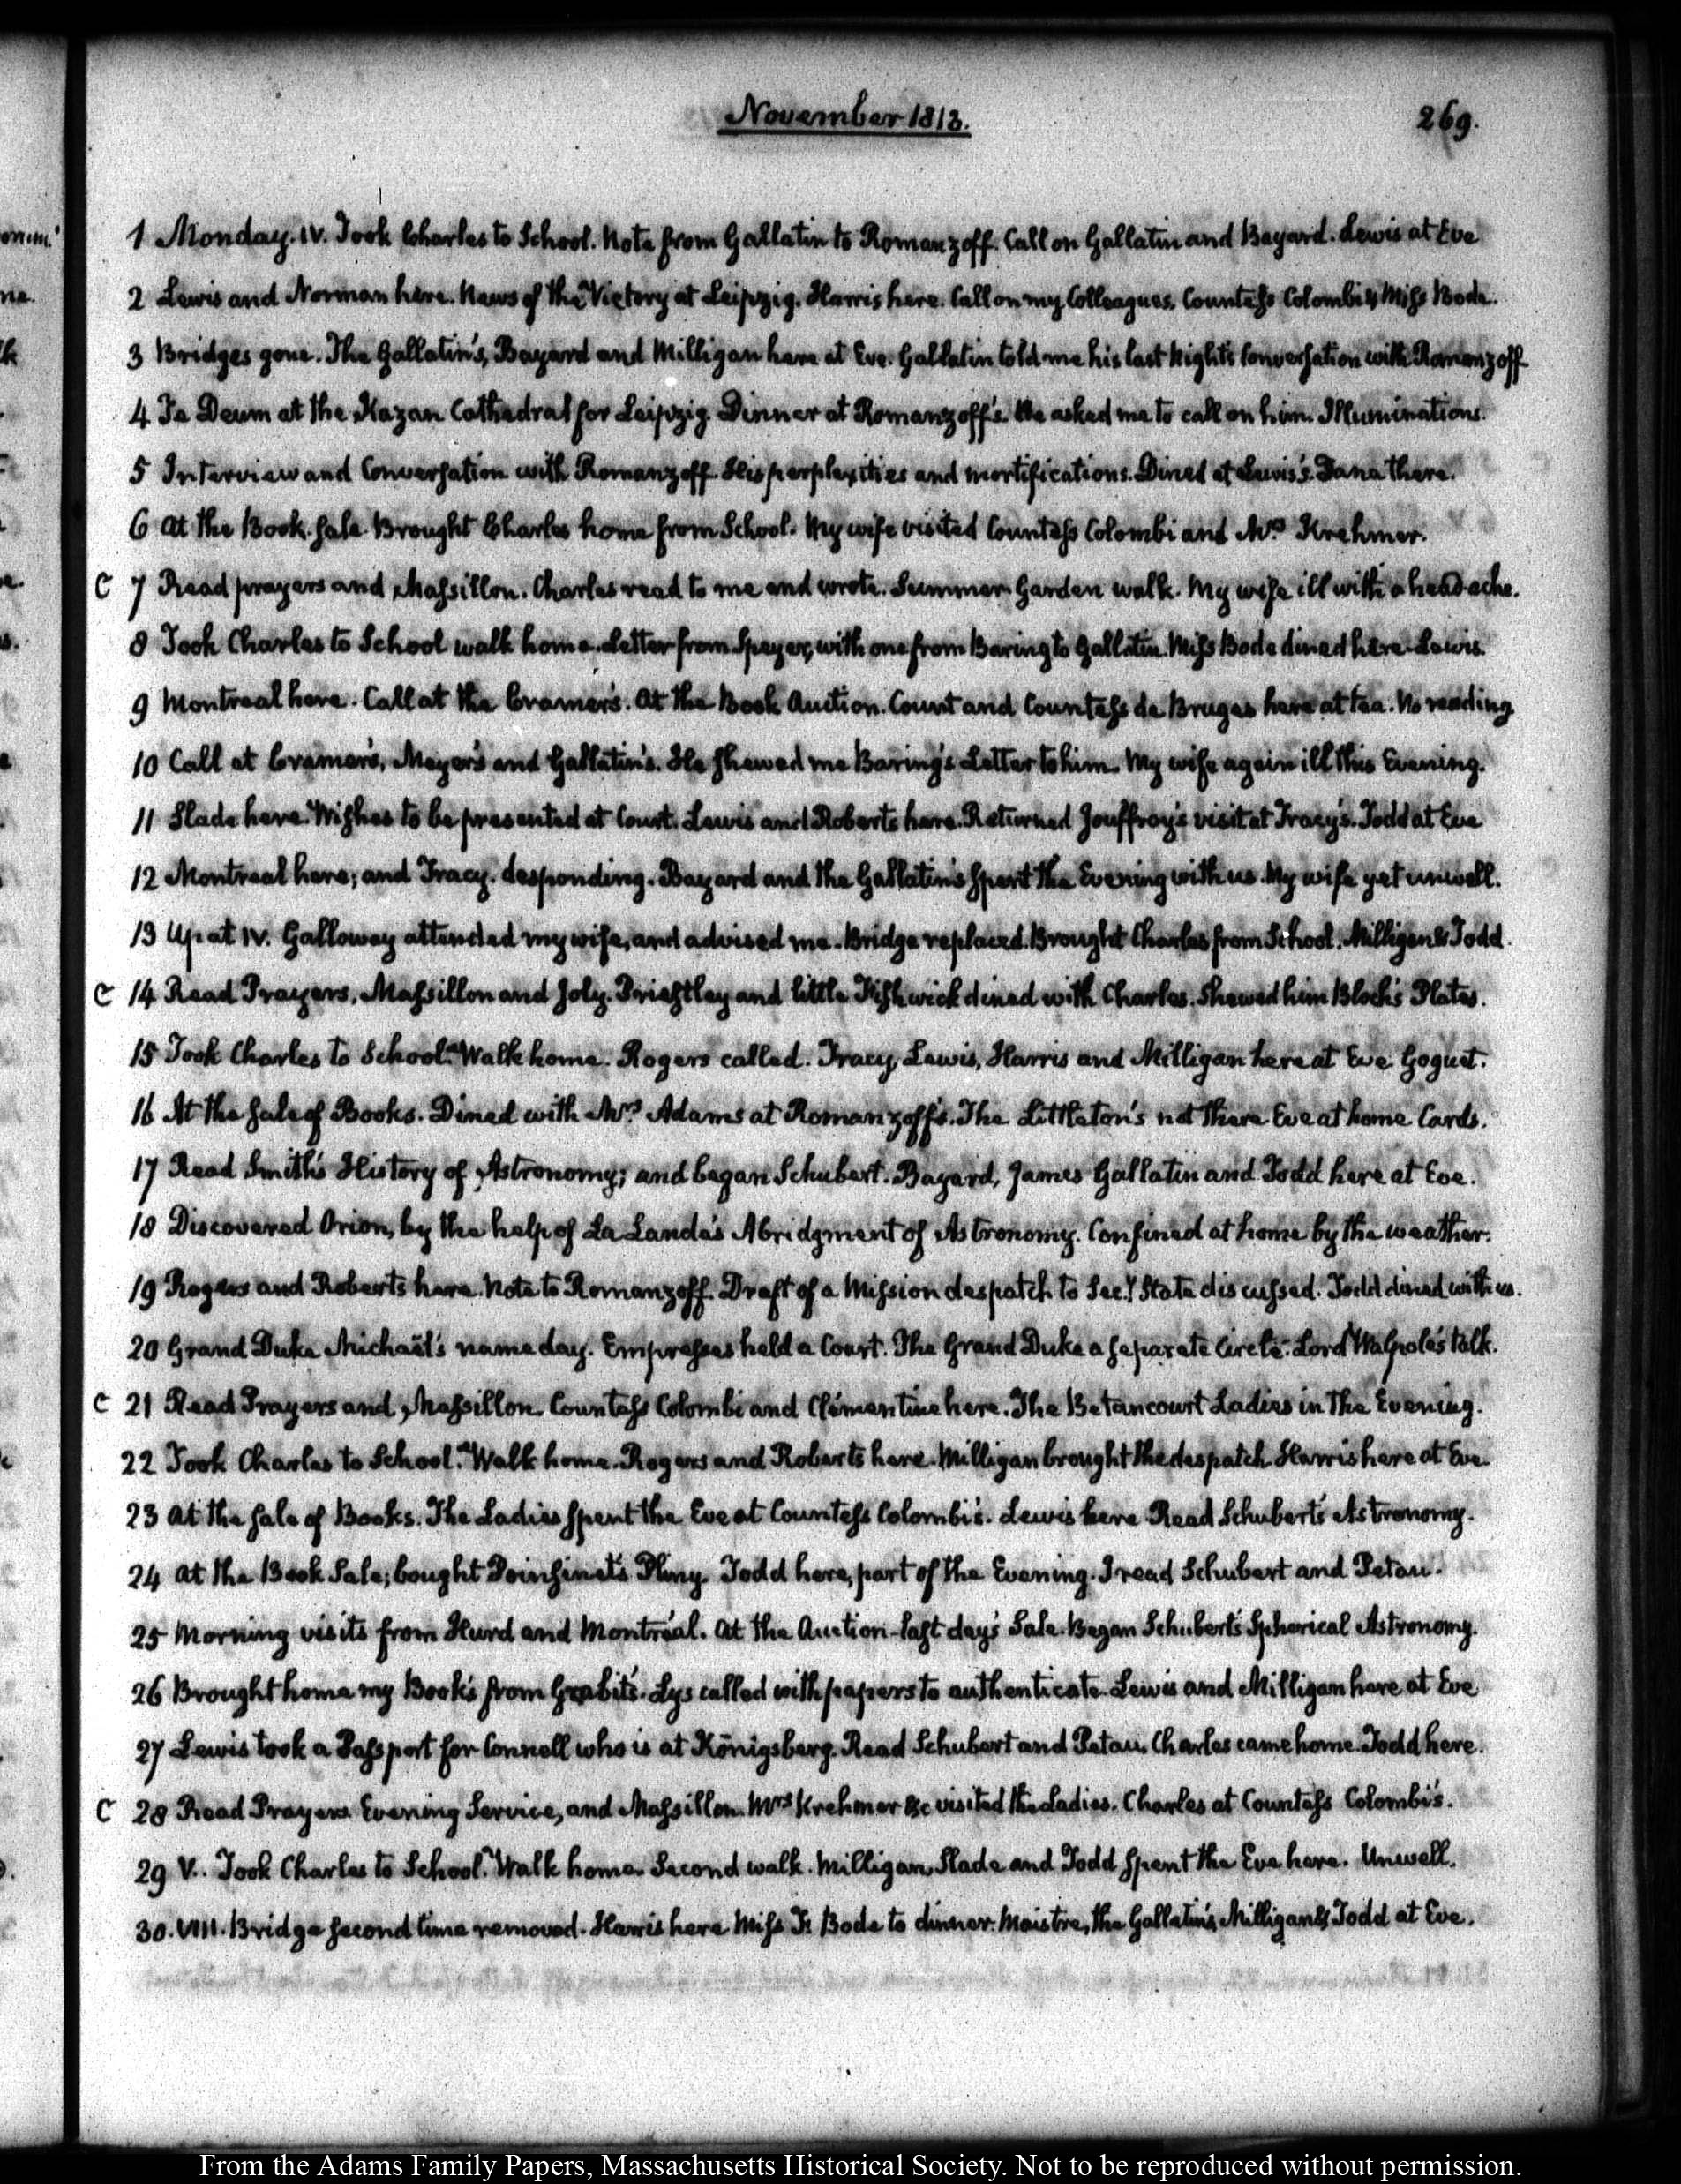 November 1813.
269.
1 Monday. IV. Took Charles to School. Note from Gallatin to Romanzoff. Call on Gallatin and Bayard. Lewis at Eve
2 Lewis and Norman here. News of the Victory at Leipzig. Harris here. Call on my Colleagues. Countess Colombi & Miss Bode.
3 Bridges gone. The Gallatin's, Bayard and Milligan here at Eve. Gallatin told me his last Night's Conversation with Romanzoff
4 Te Deum at the Kazan Cathedral for Leipzig. Dinner at Romanzoff's. He asked me to call on him. Illuminations.
5 Interview and Conversation with Romanzoff. His perplexities and mortifications. Dined at Lewis's. Dana there.
6 At the Book-sale. Brought Charles home from School. My wife visited Countess Colombi and Mrs Krehmer.
C 7 Read prayers and Massillon. Charles read to me and wrote. Summer Garden walk. My wife ill with a head-ache.
8 Took Charles to School walk home. Letter from Speyer, with one from Baring to Gallatin. Miss Bode dined here. Lewis.
9 Montreal here. Call at the Cramer's. At the Book Auction. Count and Countess de Bruges here at tea. No reading
10 Call at Cramer's, Meyer's and Gallatin's. He shewed me Baring's Letter to him. My wife again ill this Evening.
11 Slade here. Wishes to be presented at Court. Lewis and Roberts here. Returned Jouffroy's visit at Tracy's. Todd at Eve
12 Montreal here; and Tracy. desponding. Bayard and the Gallatin's spent the Evening with us. My wife yet unwell.
13 Up at IV. Galloway attended my wife, and advised me. Bridge replaced. Brought Charles from School. Milligan & Todd.
C 14 Read Prayers, Massillon and Joly. Priestley and little Fishwick dined with Charles. Shewed him Bloch's Plates.
15 Took Charles to School. Walk home. Rogers called. Tracy, Lewis, Harris and Milligan here at Eve Goguet.
16 At the sale of Books. Dined with Mrs Adams at Romanzoff's. The Littleton's not there. Eve at home Cards.
17 Read Smith's History of Astronomy; and began Schubert. Bayard, James Gallatin and Todd here at Eve.
18 Discovered Orion, by the help of La Lande's Abridgment of Astronomy. Confined at home by the weather.
19 Rogers and Roberts here. Note to Romanzoff. Draft of a Mission despatch to Secy State discussed. Todd dined with us.
20 Grand Duke Michaël's name day. Empresses held a Court. The Grand Duke a separate Circle. Lord Walpole's talk.
C 21 Read Prayers and Massillon. Countess Colombi and Clémentine here. The Betancourt Ladies in the Evening.
22 Took Charles to School. Walk home. Rogers and Roberts here. Milligan brought the despatch. Harris here at Eve.
23 At the sale of Books. The Ladies spent the Eve at Countess Colombi's. Lewis here Read Schubert's Astronomy.
24 At the Book Sale; bought Poinsinet's Pliny. Todd here, part of the Evening. I read Schubert and Petau.
25 Morning visits from Hurd and Montréal. At the Auction—last day's Sale. Began Schubert's Spherical Astronomy.
26 Brought home my Books from Grabit's. Lys called with papers to authenticate. Lewis and Milligan here at Eve
27 Lewis took a Passport for Connell who is at Königsberg. Read Schubert and Petau. Charles came home. Todd here.
C 28 Read Prayers. Evening Service, and Massillon. Mrs Krehmer &c visited the Ladies. Charles at Countess Colombi's.
29 V.. Took Charles to School. Walk home. Second walk. Milligan, Slade and Todd spent the Eve here. Unwell.
30. VIII. Bridge second time removed. Harris here Miss Fr. Bode to dinner. Maistre, the Gallatin's, Milligan & Todd at Eve.
From the Adams Family Papers, Massachusetts Historical Society. Not to be reproduced without permission.